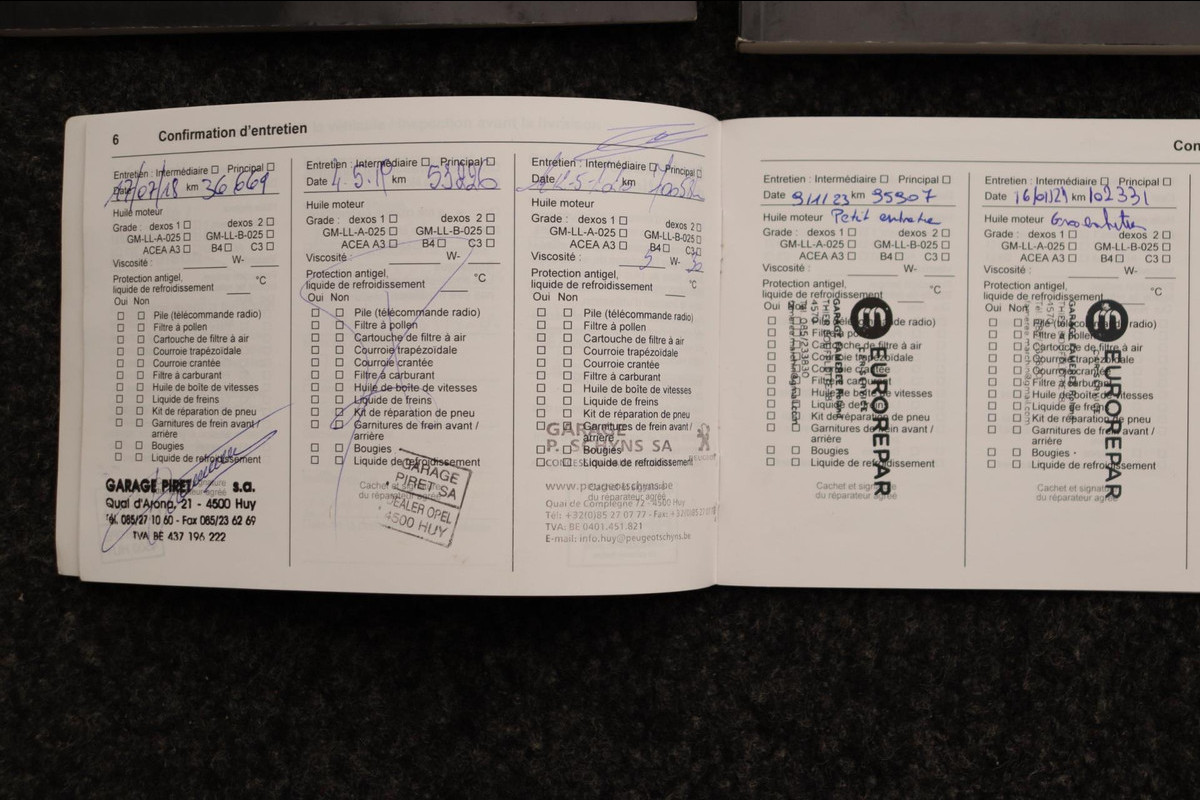 6 Confirmation d'entretien
Entretien : Intermédiaire ☐ Principal ☐
Date 17/07/18 km 36 669
Huile moteur
Grade : dexos 1 ☐ dexos 2 ☐
GM-LL-A-025 ☐ GM-LL-B-025 ☐
ACEA A3 ☐ B4 ☐ C3 ☐
Viscosité : W-
Protection antigel,
liquide de refroidissement °C
Oui Non
☐ ☐ Pile (télécommande radio)
☐ ☐ Filtre à pollen
☐ ☐ Cartouche de filtre à air
☐ ☐ Courroie trapézoïdale
☐ ☐ Courroie crantée
☐ ☐ Filtre à carburant
☐ ☐ Huile de boîte de vitesses
☐ ☐ Liquide de freins
☐ ☐ Kit de réparation de pneu
☐ ☐ Garnitures de frein avant /
arrière
☐ ☐ Bougies
☐ ☐ Liquide de refroidissement
GARAGE PIRET s.a.
Quai d'Arona, 21 - 4500 Huy
Tél. 085/27 10 60 - Fax 085/23 62 69
TVA BE 437 196 222
Entretien : Intermédiaire ☐ Principal ☐
Date 4.5. km
Huile moteur
Grade : dexos 1 ☐ dexos 2 ☐
GM-LL-A-025 ☐ GM-LL-B-025 ☐
ACEA A3 ☐ B4 ☐ C3 ☐
Viscosité : W-
Protection antigel,
liquide de refroidissement °C
Oui Non
☐ ☐ Pile (télécommande radio)
☐ ☐ Filtre à pollen
☐ ☐ Cartouche de filtre à air
☐ ☐ Courroie trapézoïdale
☐ ☐ Courroie crantée
☐ ☐ Filtre à carburant
☐ ☐ Huile de boîte de vitesses
☐ ☐ Liquide de freins
☐ ☐ Kit de réparation de pneu
☐ ☐ Garnitures de frein avant /
arrière
☐ ☐ Bougies
☐ ☐ Liquide de refroidissement
Cachet et signature
du réparateur agréé
GARAGE
PIRET SA
DEALER OPEL
4500 HUY
Entretien : Intermédiaire ☐ Principal ☐
Date km
Huile moteur
Grade : dexos 1 ☐ dexos 2 ☐
GM-LL-A-025 ☐ GM-LL-B-025 ☐
ACEA A3 ☐ B4 ☐ C3 ☐
Viscosité : 5 W- 30
Protection antigel,
liquide de refroidissement °C
Oui Non
☐ ☐ Pile (télécommande radio)
☐ ☐ Filtre à pollen
☐ ☐ Cartouche de filtre à air
☐ ☐ Courroie trapézoïdale
☐ ☐ Courroie crantée
☐ ☐ Filtre à carburant
☐ ☐ Huile de boîte de vitesses
☐ ☐ Liquide de freins
☐ ☐ Kit de réparation de pneu
☐ ☐ Garnitures de frein avant /
arrière
☐ ☐ Bougies
☐ ☐ Liquide de refroidissement
Cachet et signature
du réparateur agréé
GARAGE
P. SCHYNS SA
PEUGEOT
www.peugeotschyns.be
Quai de Compiègne 72 - 4500 Huy
Tél: +32(0)85 27 07 77 - Fax:
TVA: BE 0401.451.821
E-mail: info.huy@peugeotschyns.be
Con
Entretien : Intermédiaire ☐ Principal ☐
Date 9/1/23 km 95907
Huile moteur Petit entretien
Grade : dexos 1 ☐ dexos 2 ☐
GM-LL-A-025 ☐ GM-LL-B-025 ☐
ACEA A3 ☐ B4 ☐ C3 ☐
Viscosité : W-
Protection antigel,
liquide de refroidissement °C
Oui Non
☐ ☐ Pile (télécommande radio)
☐ ☐ Filtre à pollen
☐ ☐ Cartouche de filtre à air
☐ ☐ Courroie trapézoïdale
☐ ☐ Courroie crantée
☐ ☐ Filtre à carburant
☐ ☐ Huile de boîte de vitesses
☐ ☐ Liquide de freins
☐ ☐ Kit de réparation de pneu
☐ ☐ Garnitures de frein avant /
arrière
☐ ☐ Bougies
☐ ☐ Liquide de refroidissement
Cachet et signature
du réparateur agréé
EUROREPAR
Entretien : Intermédiaire ☐ Principal ☐
Date 16/01/24 km 102331
Huile moteur Gros entretien
Grade : dexos 1 ☐ dexos 2 ☐
GM-LL-A-025 ☐ GM-LL-B-025 ☐
ACEA A3 ☐ B4 ☐ C3 ☐
Viscosité : W-
Protection antigel,
liquide de refroidissement °C
Oui Non
☐ ☐ Pile (télécommande radio)
☐ ☐ Filtre à pollen
☐ ☐ Cartouche de filtre à air
☐ ☐ Courroie trapézoïdale
☐ ☐ Courroie crantée
☐ ☐ Filtre à carburant
☐ ☐ Huile de boîte de vitesses
☐ ☐ Liquide de freins
☐ ☐ Kit de réparation de pneu
☐ ☐ Garnitures de frein avant /
arrière
☐ ☐ Bougies
☐ ☐ Liquide de refroidissement
Cachet et signature
du réparateur agréé
EUROREPAR